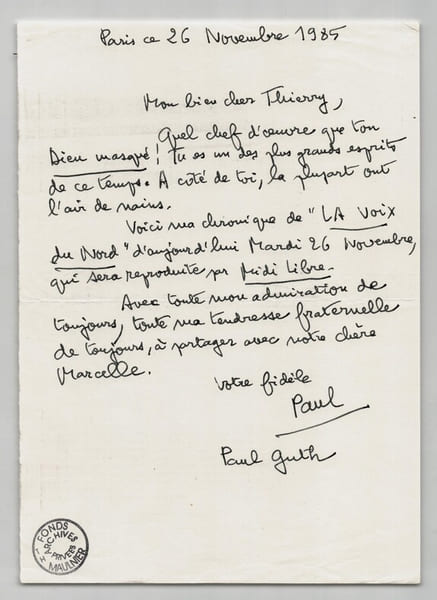 Paris ce 26 Novembre 1985
Mon bien cher Thierry,
Quel chef d'œuvre que ton
Dieu masqué ! Tu es un des plus grands esprits
de ce temps. A côté de toi, la plupart ont
l'air de nains.
Voici ma chronique de "LA Voix
du Nord" d'aujourd'hui Mardi 26 Novembre,
qui sera reproduite par Midi Libre.
Avec toute mon admiration de
toujours, toute ma tendresse fraternelle
de toujours, à partager avec notre chère
Marcelle.
Votre fidèle
Paul
Paul Guth
FONDS
ARCHIVES
PRIVÉES
TH MAULNIER